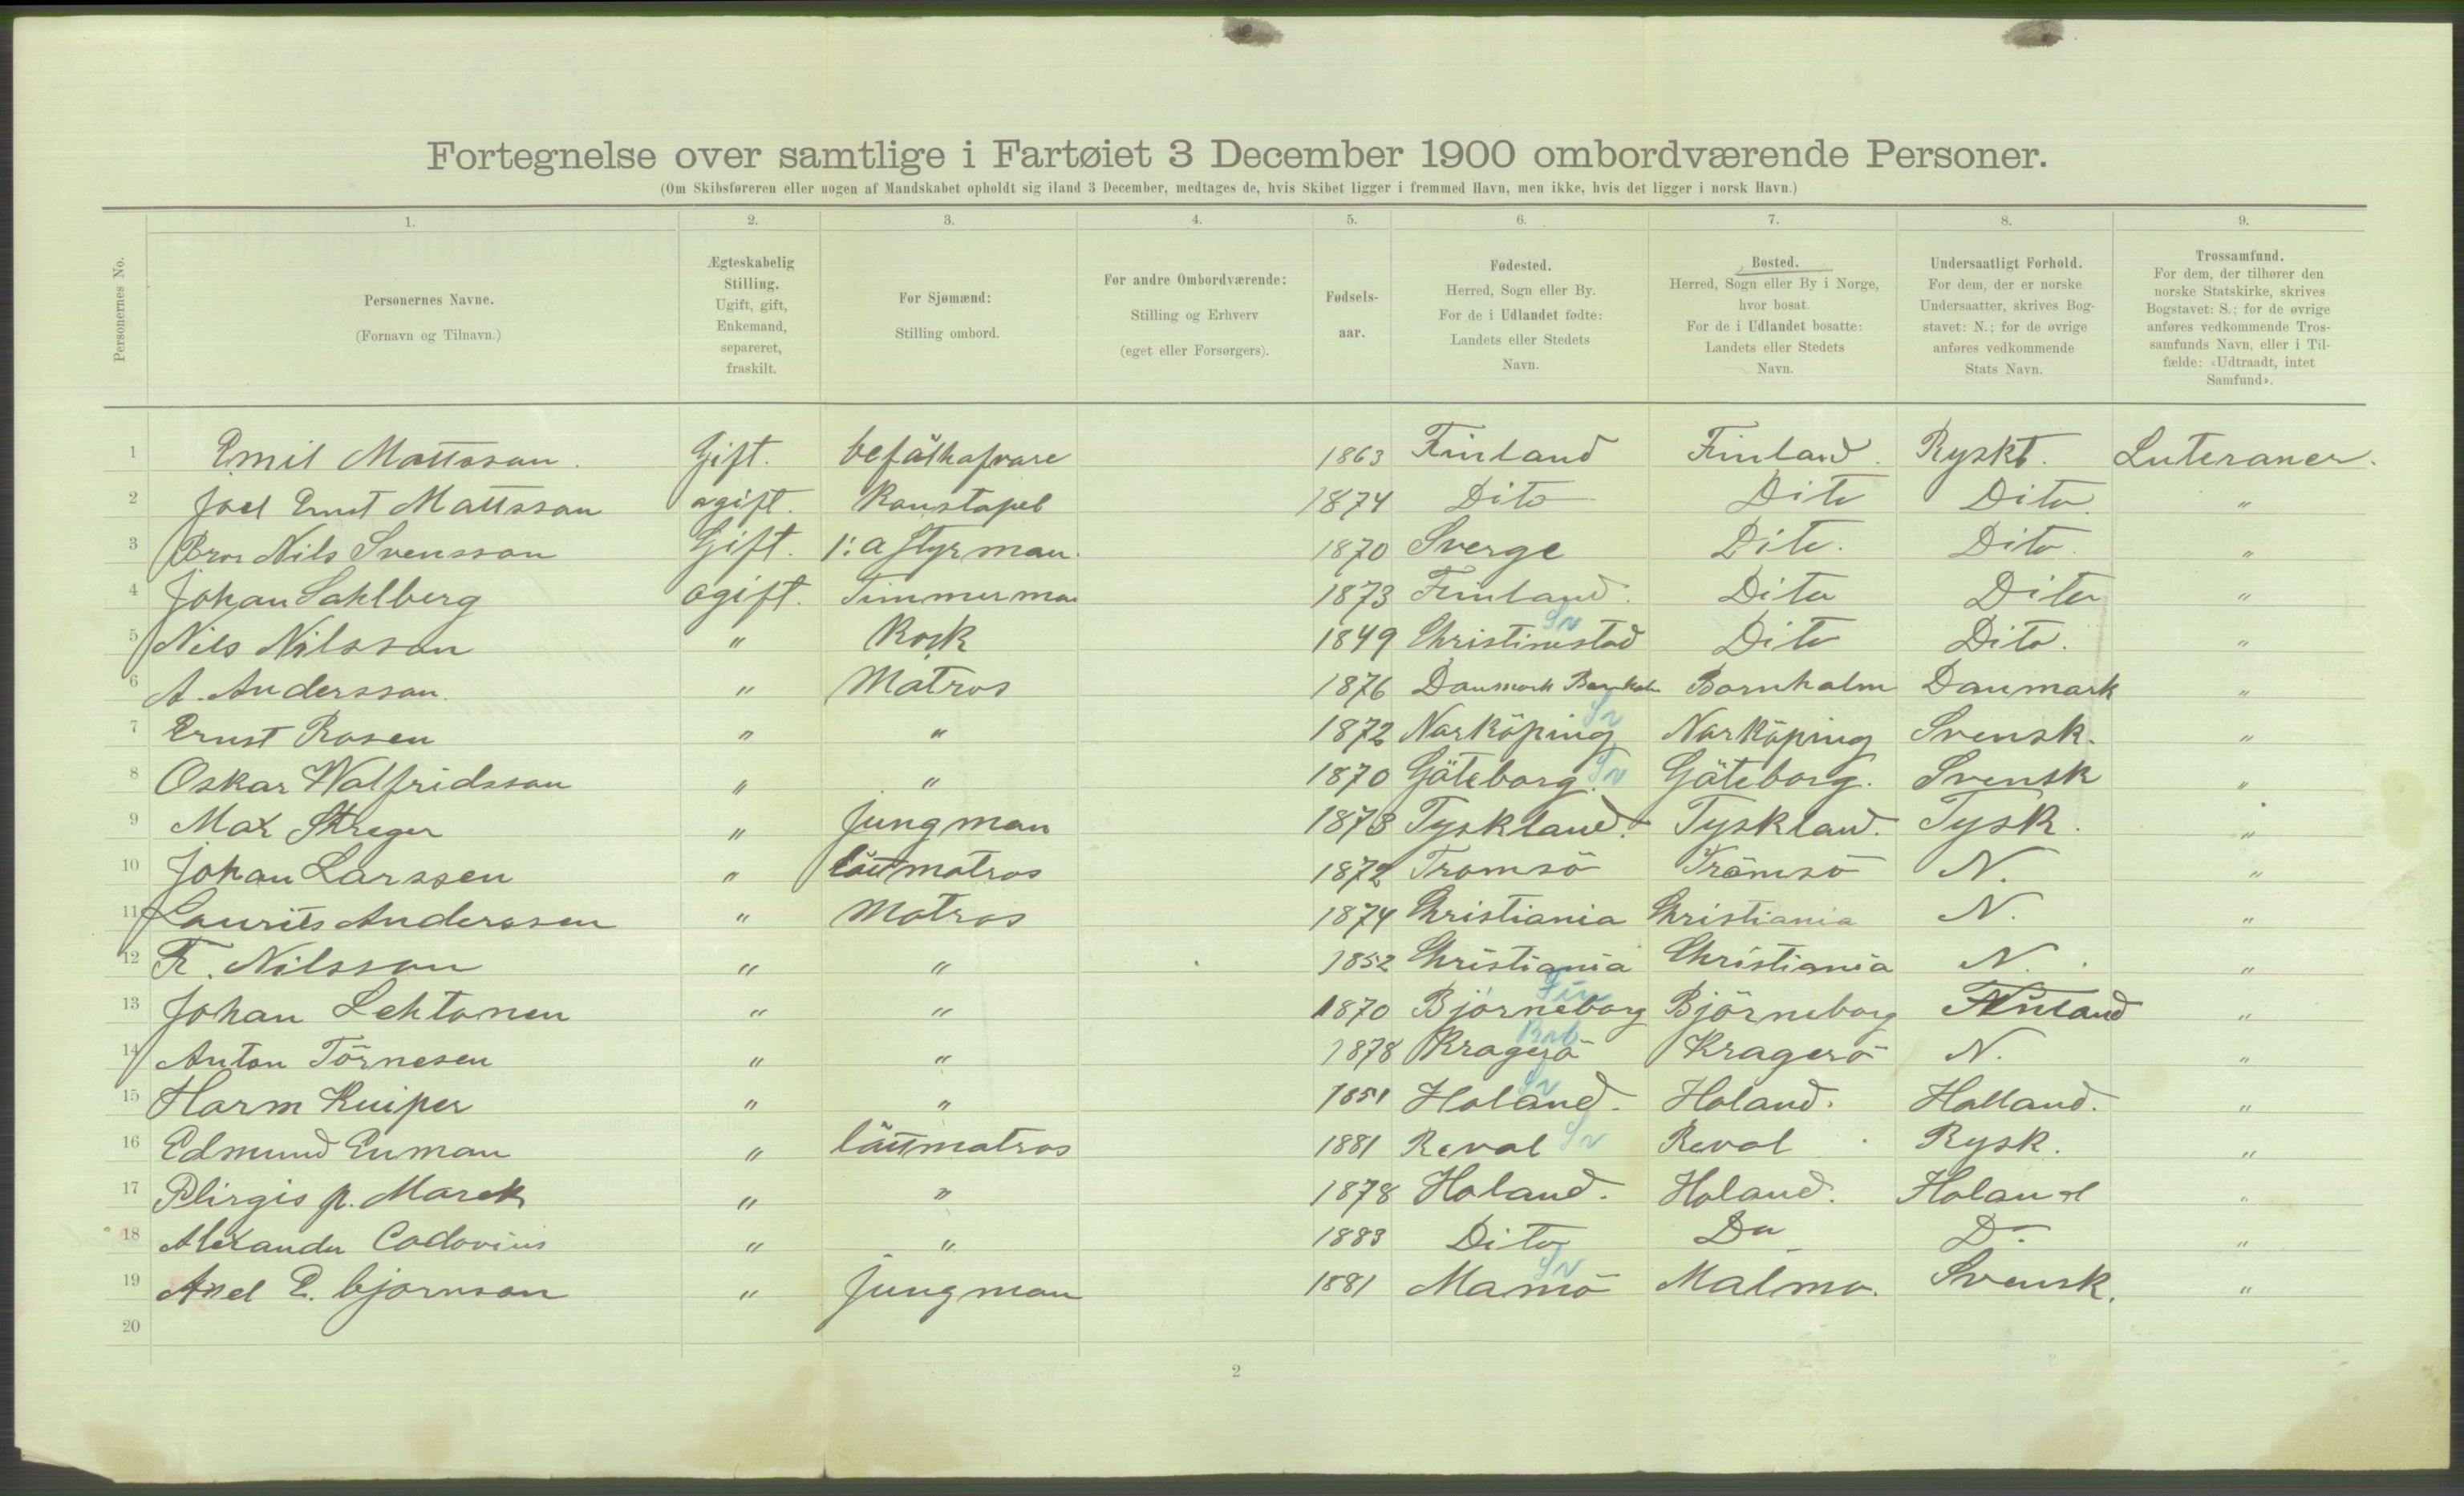 Fortegnelse over samtlige i Fartøiet 3 December 1900 ombordværende Personer.
(Om Skibsføreren eller nogen af Mandskabet opholdt sig iland 3 December, medtages de, hvis Skibet ligger i fremmed Havn, men ikke, hvis det ligger i norsk Havn.)
Personernes No.
1. 2. 3. 4. 5. 6. 7. 8. 9.
Personernes Navne.
(Fornavn og Tilnavn.)
Ægteskabelig
Stilling.
Ugift, gift,
Enkemand,
separeret,
fraskilt.
For Sjømænd:
Stilling ombord.
For andre Ombordværende:
Stilling og Erhverv
(eget eller Forsørgers).
Fødsels-
aar.
Fødested.
Herred, Sogn eller By.
For de i Udlandet fødte:
Landets eller Stedets
Navn.
Bosted.
Herred, Sogn eller By i Norge,
hvor bosat.
For de i Udlandet bosatte:
Landets eller Stedets
Navn.
Undersaatligt Forhold.
For dem, der er norske
Undersaatter, skrives Bog-
stavet: N.; for de øvrige
anføres vedkommende
Stats Navn.
Trossamfund.
For dem, der tilhører den
norske Statskirke, skrives
Bogstavet: S.; for de øvrige
anføres vedkommende Tros-
samfunds Navn, eller i Til-
fælde: «Udtraadt, intet
Samfund».
1 Emil Mattsson. Gift. befälhafvare 1863 Finland Finland. Ryskt. Luteraner.
2 Joel Ernst Mattsson ogift. Konstapel 1874 Dito Dito Dito. "
3 Bror Nils Svensson Gift. 1:a Styrman. 1870 Sverge Dito. Dito. "
4 Johan Sahlberg ogift. Timmerman 1873 Finland. Dito Dito "
5 Nils Nilsson " Kock 1849 Christinestad Dito Dito. "
6 A. Andersson. " Matros 1876 Danmark Bornholm Bornholm Danmark "
7 Ernst Rosen " " 1872 Norköping Norköping Svensk. "
8 Oskar Walfridsson " " 1870 Göteborg. Göteborg. Svensk "
9 Max " Jungman 1878 Tyskland. Tyskland. Tysk. "
10 Johan Larssen " lättmatros 1872 Tromsö Tromsö N. "
11 Laurits Anderssen " Matros 1874 Christiania Christiania N. "
12 F. Nilsson " " 1852 Christiania Christiania N. "
13 Johan Lehtonen " " 1870 Björneborg Björneborg Finland "
14 Anton Törnesen " " 1878 Kragerö Kragerö N. "
15 Harm Kuiper " " 1851 Holand. Holand. Holland. "
16 Edmund Enman " lättmatros 1881 Reval Reval Rysk. "
17 p. Marek " " 1878 Holand. Holand. Holand "
18 Alexander Codovius " " 1883 Dito Do Do "
19 Axel E. bjornson " Jungman 1881 Mamö Malmo. Svensk. "
20
2